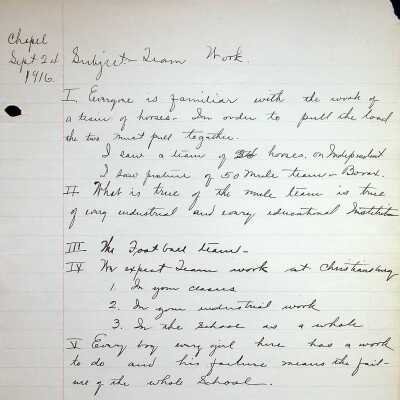 Chapel
Sept 24
1916.
Subject - Team Work.
I. Everyone is familiar with the work of
a team of horses. In order to pull the load
the two must pull together.
I saw a team of horses. on Independent
I saw picture of 50 mule team - Borax.
II What is true of the mule team is true
of every industrial and every educational Institution
III The Football team -
IV We expect Team work at Christiansburg
1. In your classes
2. In your industrial work
3. In the school as a whole
V Every boy every girl here has a work
to do and his failure means the fail-
ure of the whole school.